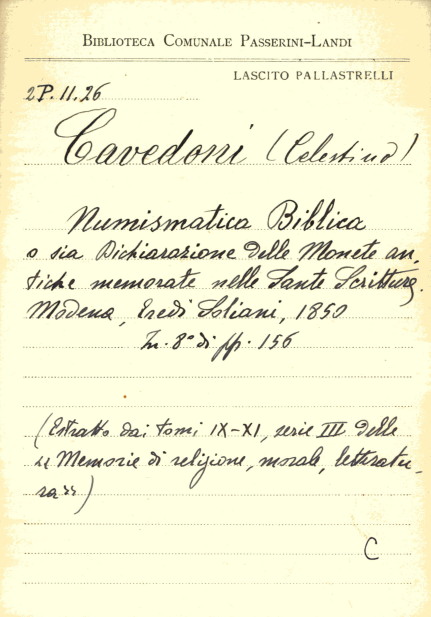 BIBLIOTECA COMUNALE PASSERINI-LANDI
LASCITO PALLASTRELLI
2P.11.26
Cavedoni (Celestino)
Numismatica Biblica
o sia Dichiarazione delle Monete an,
tiche memorate nelle Sante Scritture.
Modena, Eredi Soliani, 1850
In-8° di pp. 156
(Estratto dai tomi IX-XI, serie III delle
« Memorie di religione, morale, letteratu-
ra»)
C